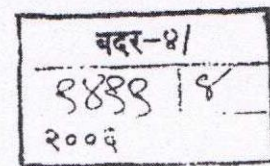 बदर-४/
९४९९ | ४
२००६